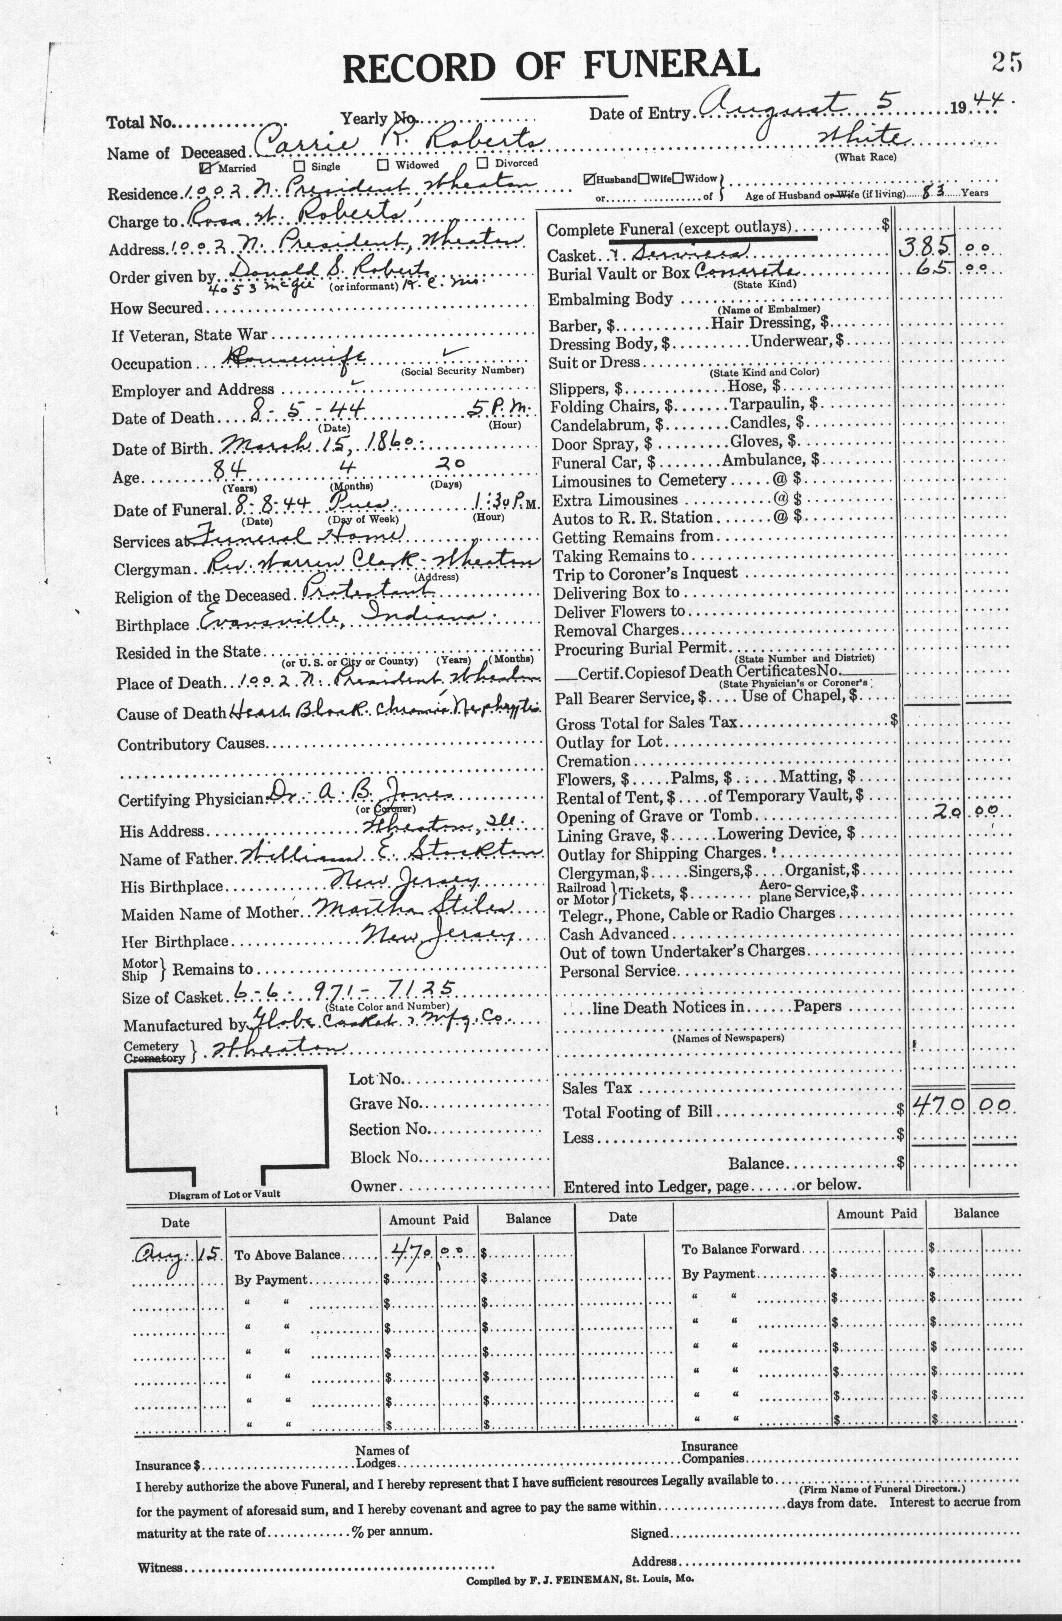 RECORD OF FUNERAL
25
Total No. Yearly No. Date of Entry August 5 1944.
Name of Deceased Carrie R. Roberts White
(What Race)
Married Single Widowed Divorced
Residence 1002 N. President, Wheaton
Husband Wife Widow or of Age of Husband or Wife (if living) 83 Years
Charge to Ross W. Roberts
Address 1002 N. President, Wheaton
Order given by Donald S. Roberts
4053 McGee (or informant) K.C. Mo.
How Secured
If Veteran, State War
Occupation Housewife
(Social Security Number)
Employer and Address
Date of Death 8-5-44 5 P.M.
(Date) (Hour)
Date of Birth March 15, 1860
Age 84 4 20
(Years) (Months) (Days)
Date of Funeral 8-8-44 Tues 1:30 P.M.
(Date) (Day of Week) (Hour)
Services at Funeral Home
Clergyman Rev. Warren Clark - Wheaton
(Address)
Religion of the Deceased Protestant
Birthplace Evansville, Indiana
Resided in the State
(or U. S. or City or County) (Years) (Months)
Place of Death 1002 N. President, Wheaton
Cause of Death Heart Block. Chronic Nephrytis
Contributory Causes
Certifying Physician Dr. A. B. Jones
(or Coroner)
His Address Wheaton, Ill.
Name of Father William E. Stockton
His Birthplace New Jersey
Maiden Name of Mother Martha Stiles
Her Birthplace New Jersey
Motor Ship } Remains to
Size of Casket 6-6- 971-7125
(State Color and Number)
Manufactured by Globe Casket & Mfg. Co.
Cemetery Crematory } Wheaton
Lot No.
Grave No.
Section No.
Block No.
Owner
Diagram of Lot or Vault
Complete Funeral (except outlays) $
Casket & Services 385 00
Burial Vault or Box Concrete 65 00
(State Kind)
Embalming Body
(Name of Embalmer)
Barber, $ Hair Dressing, $
Dressing Body, $ Underwear, $
Suit or Dress
(State Kind and Color)
Slippers, $ Hose, $
Folding Chairs, $ Tarpaulin, $
Candelabrum, $ Candles, $
Door Spray, $ Gloves, $
Funeral Car, $ Ambulance, $
Limousines to Cemetery @ $
Extra Limousines @ $
Autos to R. R. Station @ $
Getting Remains from
Taking Remains to
Trip to Coroner's Inquest
Delivering Box to
Deliver Flowers to
Removal Charges
Procuring Burial Permit
(State Number and District)
Certif. Copies of Death Certificates No.
(State Physician's or Coroner's
Pall Bearer Service, $ Use of Chapel, $
Gross Total for Sales Tax $
Outlay for Lot
Cremation
Flowers, $ Palms, $ Matting, $
Rental of Tent, $ of Temporary Vault, $
Opening of Grave or Tomb 20 00
Lining Grave, $ Lowering Device, $
Outlay for Shipping Charges
Clergyman, $ Singers, $ Organist, $
Railroad or Motor } Tickets, $ Aeroplane Service, $
Telegr., Phone, Cable or Radio Charges
Cash Advanced
Out of town Undertaker's Charges
Personal Service
line Death Notices in Papers
(Names of Newspapers)
Sales Tax
Total Footing of Bill $ 470 00
Less $
Balance $
Entered into Ledger, page or below.
Date Amount Paid Balance Date Amount Paid Balance
Aug. 15 To Above Balance 470 00 $ To Balance Forward $
By Payment $ $ By Payment $ $
" " $ $ " " $ $
" " $ $ " " $ $
" " $ $ " " $ $
" " $ $ " " $ $
" " $ $ " " $ $
" " $ $ " " $ $
Insurance $ Names of Lodges Insurance Companies
I hereby authorize the above Funeral, and I hereby represent that I have sufficient resources Legally available to
(Firm Name of Funeral Directors.)
for the payment of aforesaid sum, and I hereby covenant and agree to pay the same within days from date. Interest to accrue from
maturity at the rate of % per annum. Signed
Witness Address
Compiled by F. J. FEINEMAN, St. Louis, Mo.